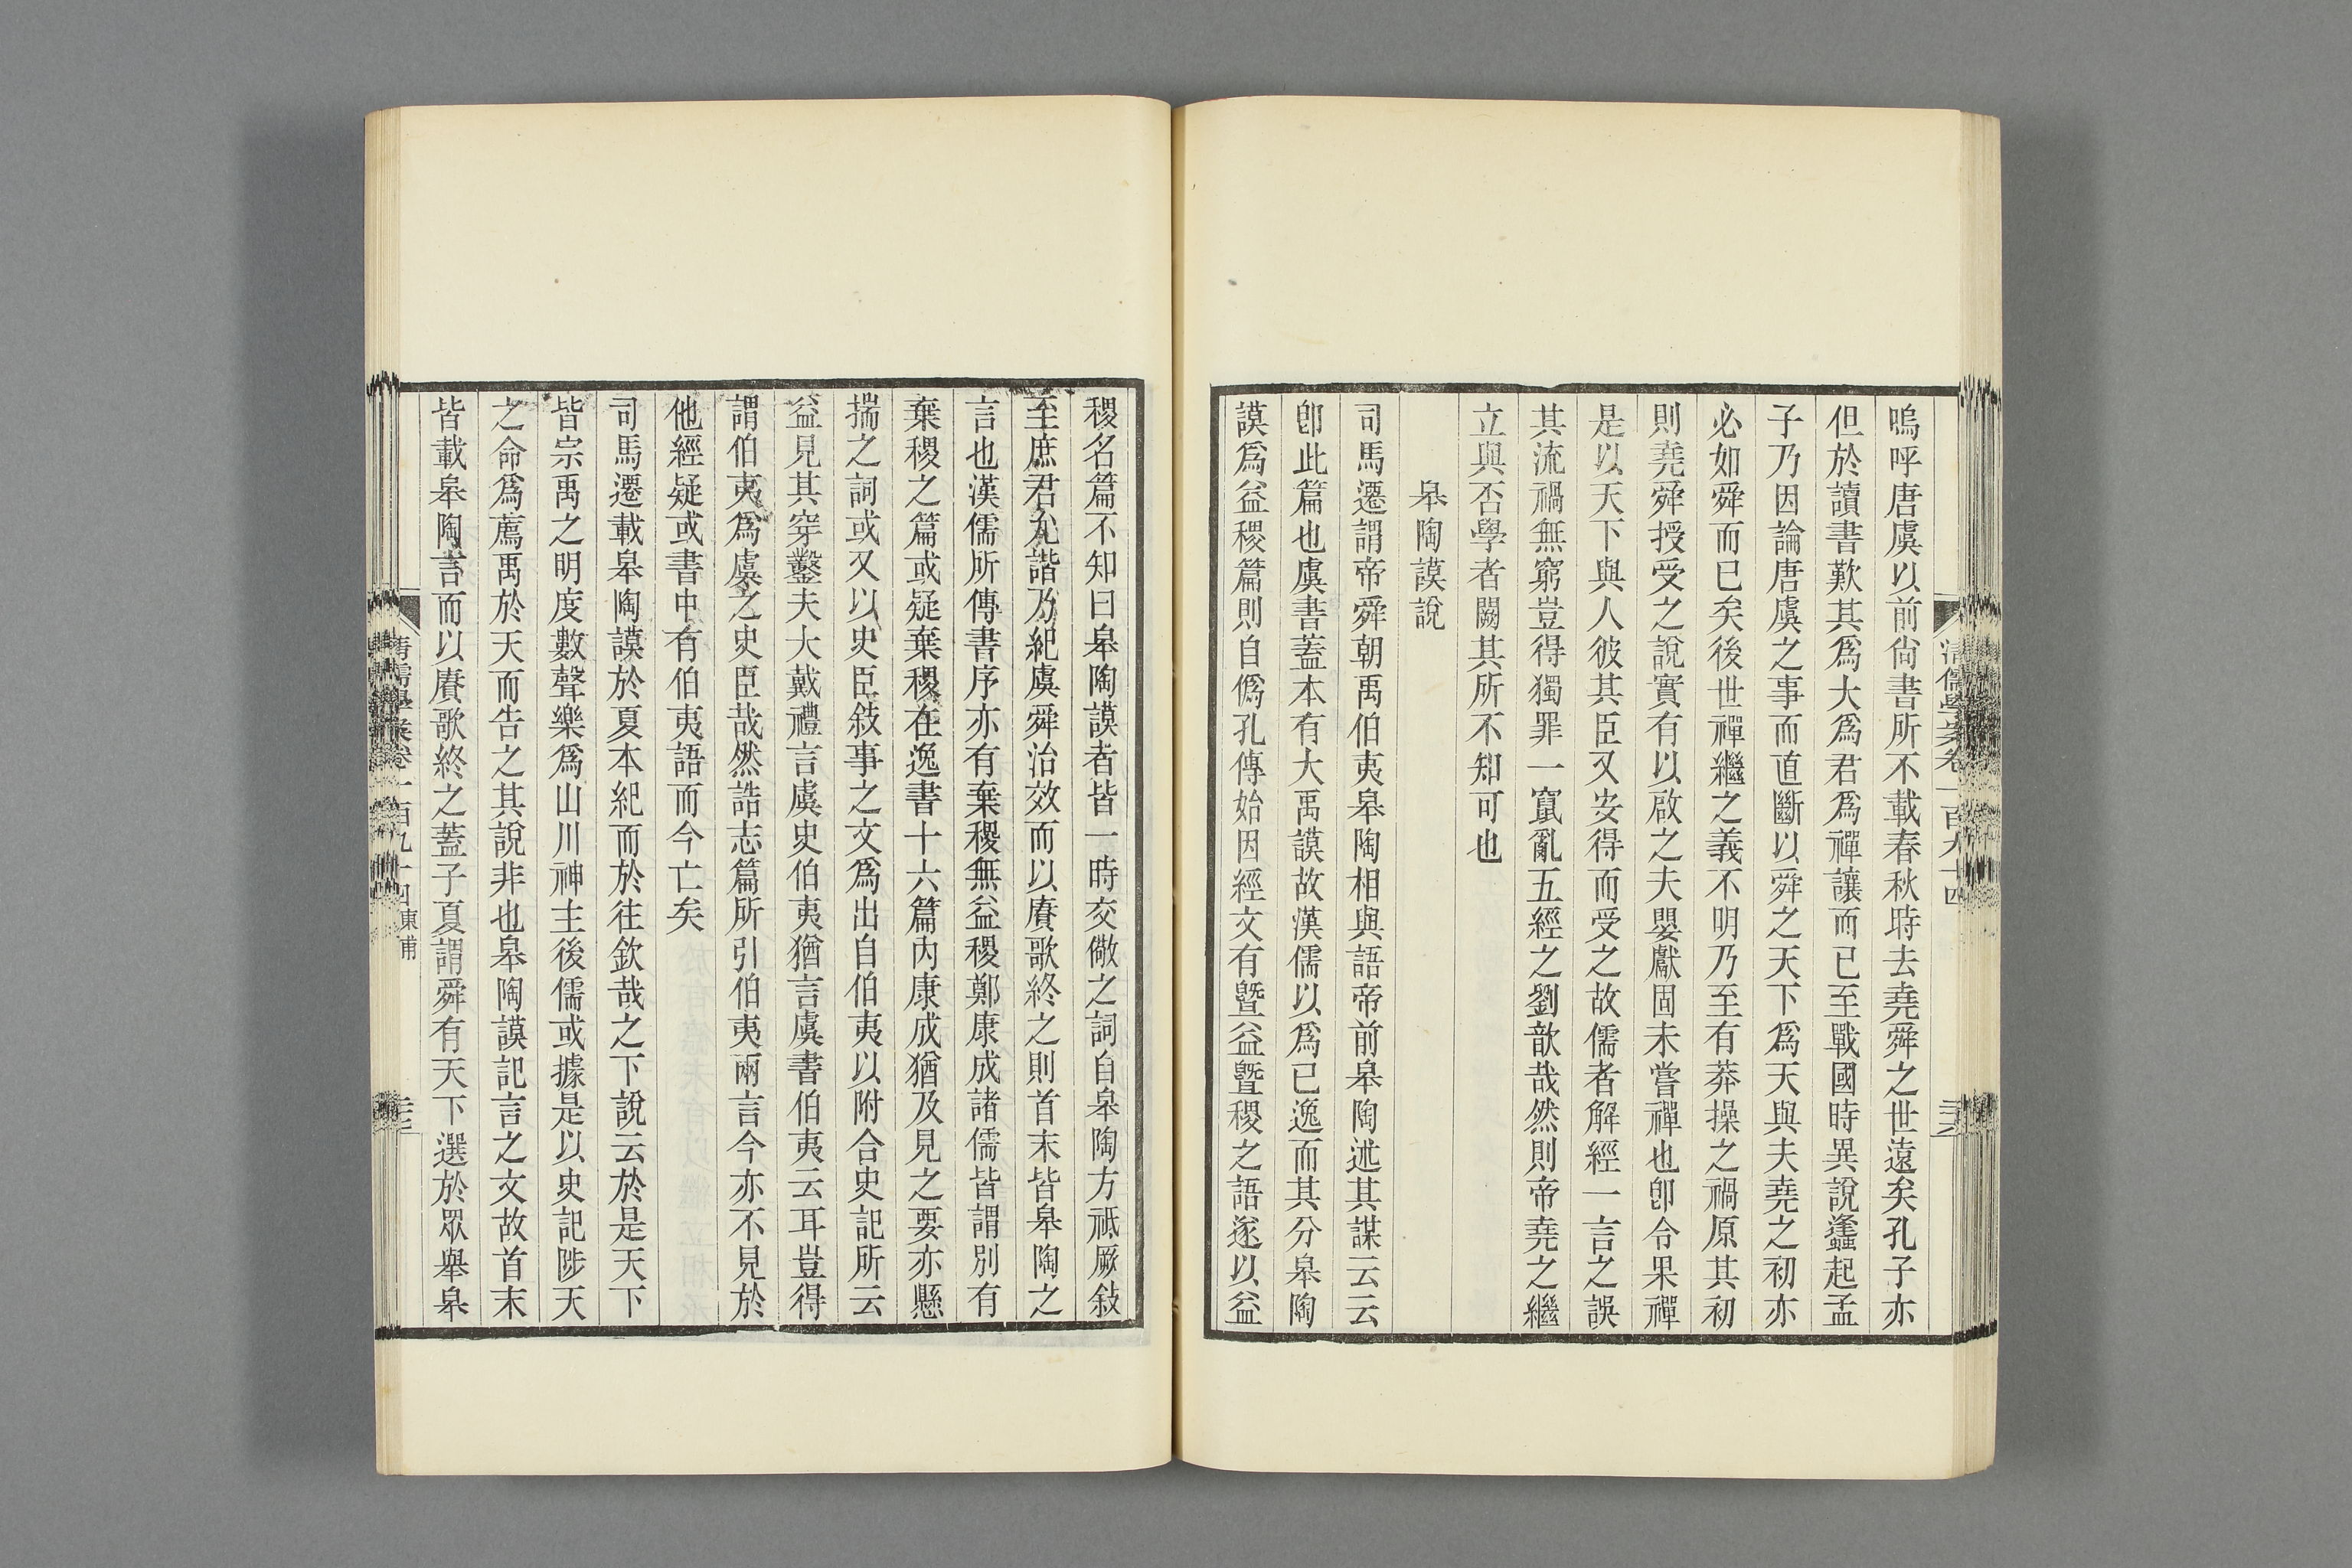 嗚呼唐虞以前尙書所不載春秋時去堯舜之世遠矣孔子亦
但於讀書歎其爲大爲君爲禪讓而已至戰國時異說蠭起孟
子乃因論唐虞之事而直斷以舜之天下爲天與夫堯之初亦
必如舜而已矣後世禪繼之義不明乃至有莽操之禍原其初
則堯舜授受之說實有以啟之夫嬰獻固未嘗禪也卽令果禪
是以天下與人彼其臣又安得而受之故儒者解經一言之誤
其流禍無窮豈得獨罪一竄亂五經之劉歆哉然則帝堯之繼
立與否學者闕其所不知可也
皋陶謨說
司馬遷謂帝舜朝禹伯夷皋陶相與語帝前皋陶述其謀云云
卽此篇也虞書蓋本有大禹謨故漢儒以爲已逸而其分皋陶
謨爲益稷篇則自僞孔傳始因經文有曁益曁稷之語遂以益
清儒學案卷一百九十四
稷名篇不知曰皋陶謨者皆一時交儆之詞自皋陶方祗厥敍
至庶君允諧乃紀虞舜治效而以賡歌終之則首末皆皋陶之
言也漢儒所傳書序亦有棄稷無益稷鄭康成諸儒皆謂別有
棄稷之篇或疑棄稷在逸書十六篇內康成猶及見之要亦懸
揣之詞或又以史臣敍事之文爲出自伯夷以附合史記所云
益見其穿鑿夫大戴禮言虞史伯夷猶言虞書伯夷云耳豈得
謂伯夷爲虞之史臣哉然誥志篇所引伯夷兩言今亦不見於
他經疑或書中有伯夷語而今亡矣
司馬遷載皋陶謨於夏本紀而於往欽哉之下說云於是天下
皆宗禹之明度數聲樂爲山川神主後儒或據是以史記陟天
之命爲薦禹於天而告之其說非也皋陶謨記言之文故首末
皆載皋陶言而以賡歌終之蓋子夏謂舜有天下選於眾舉皋
清儒學案卷一百九十四 東甫